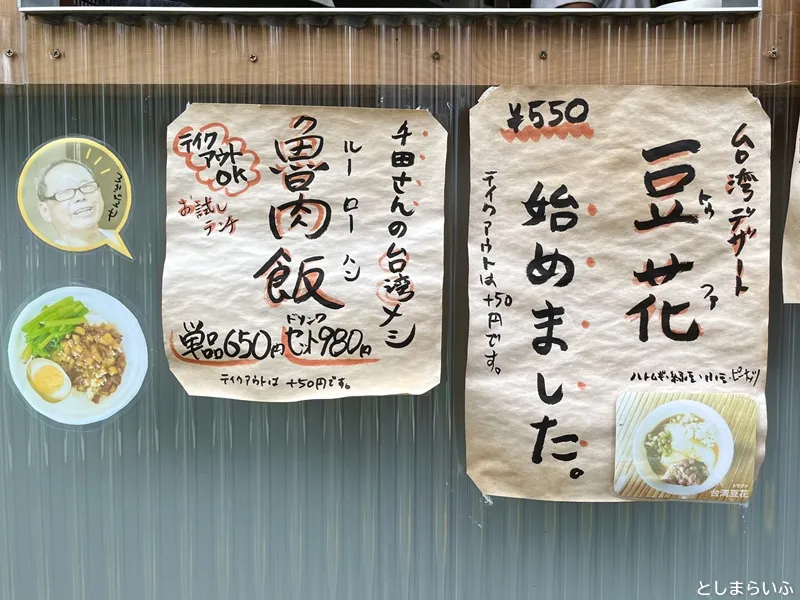 台湾デザート
豆花
トウファ
始めました。
¥550
テイクアウトは+50円です。
ハトムギ・緑豆・小豆・ピーナツ
トウファ
台湾豆花
千田さんの台湾メシ
魯肉飯
ルーローハン
テイクアウトOK
お試しランチ
単品650円
ドリンクセット980円
テイクアウトは+50円です。
としまらいふ